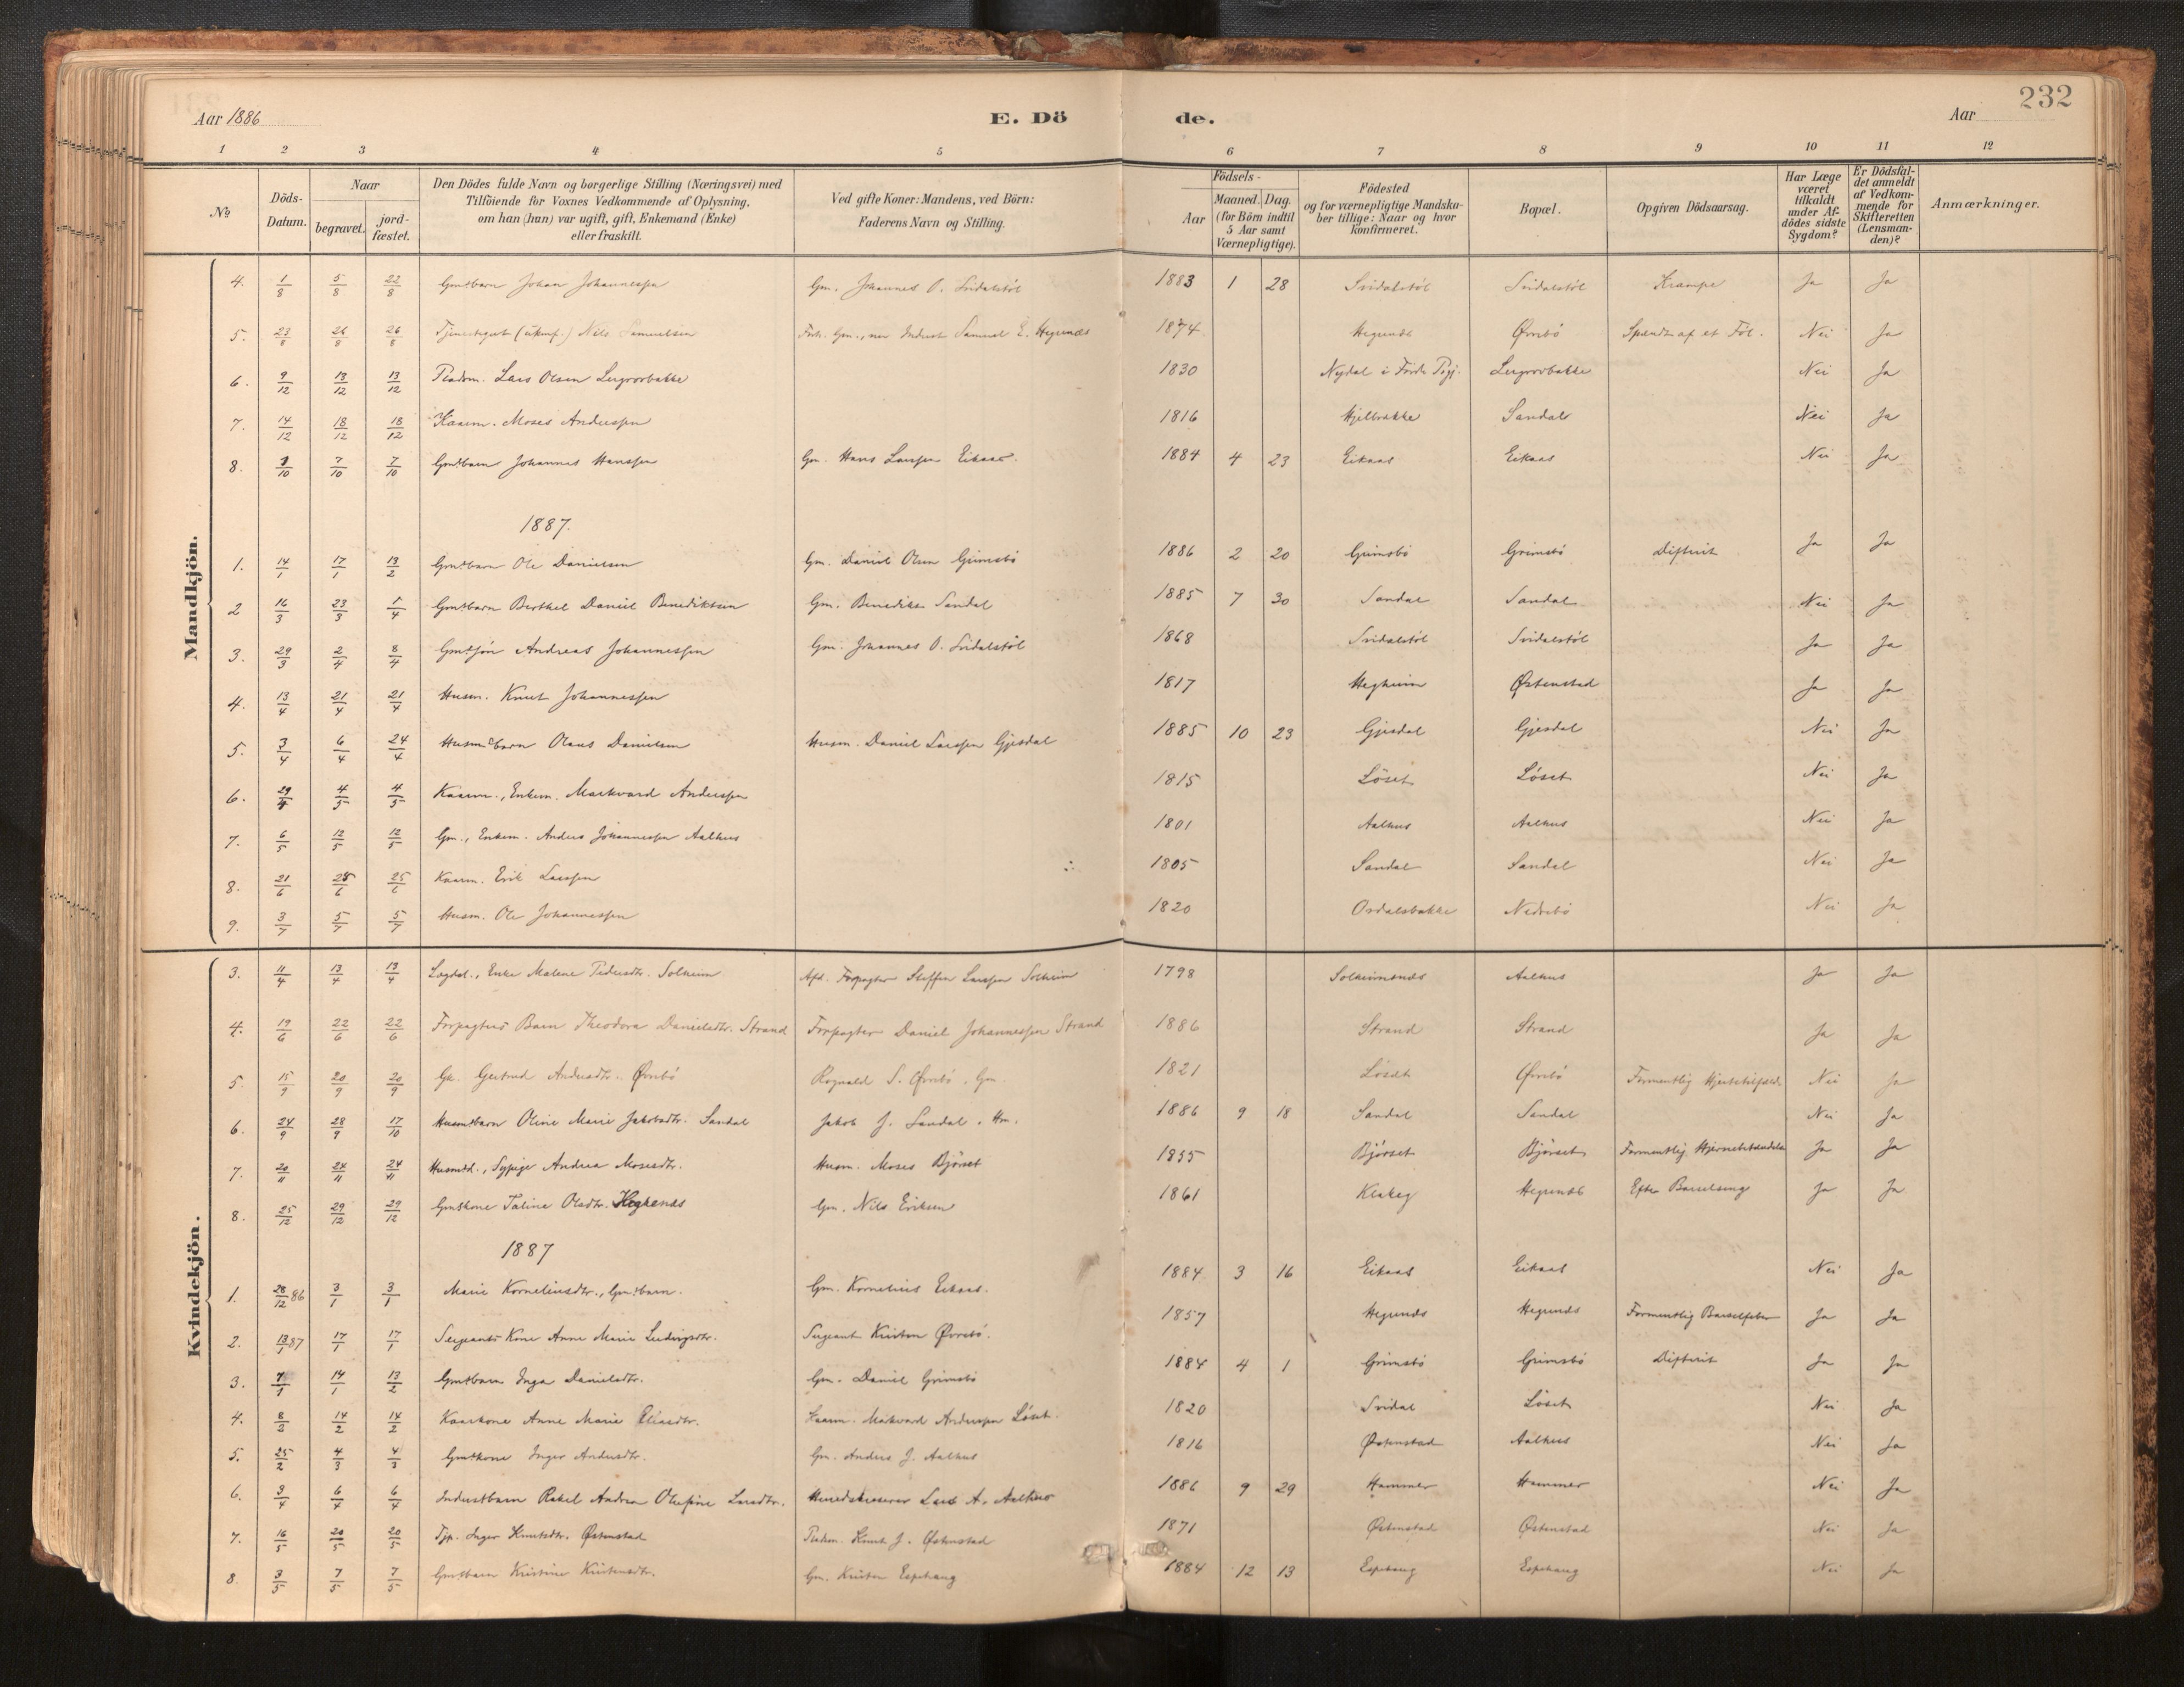 232
Aar 1886
E. Dö
de.
Aar
1 2 3 4 5 6 7 8 9 10 11 12
No
Döds-Datum.
Naar
begravet. jordfæstet.
Den Dödes fulde Navn og borgerlige Stilling (Næringsvei) med Tilföiende for Voxnes Vedkommende af Oplysning, om han (hun) var ugift, gift, Enkemand (Enke) eller fraskilt.
Ved gifte Koner: Mandens, ved Börn: Faderens Navn og Stilling.
Födsels-
Aar Maaned. Dag. (for Börn indtil 5 Aar samt Værnepligtige).
Födested og for værnepligtige Mandskaber tillige: Naar og hvor konfirmeret.
Bopæl.
Opgiven Dödsaarsag.
Har Læge været tilkaldt under Afdödes sidste Sygdom?
Er Dödsfaldet anmeldt af Vedkommende for Skifteretten (Lensmanden)?
Anmærkninger.
Mandkjön.
4. 1/8 5/8 22/8 Gmdsbarn Johan Johannessen Gm. Johannes O. Svidalstöl 1883 1 28 Svidalstöl Svidalstöl Krampe Ja Ja
5. 23/8 26/8 26/8 Tjenestegut (ukonf.) Nils Samuelsen Gm., nu Inderst Samuel E. Hegrenæs 1874 Hegrenæs Øvrebö Spændt af et Föl. Nei Ja
6. 9/12 13/12 13/12 Pladsm. Lars Olsen 1830 Nydal i Förde Pgj. Nei Ja
7. 14/12 18/12 18/12 Kaarm. Moses Anderssen 1816 Hjelbrekke Sandal Nei Ja
8. 7/10 7/10 Gmdsbarn Johannes Hanssen Gm. Hans Larssen Eikaas. 1884 4 23 Eikaas Eikaas Nei Ja
1887.
1. 14/1 17/1 13/2 Gmdsbarn Ole Danielsen Gm. Daniel Olsen Grimsbö 1886 2 20 Grimsbö Grimsbö Difterit Ja Ja
2 16/3 23/3 1/4 Gmdsbarn Berthel Daniel Benediktsen Gm. Benedikt Sandal 1885 7 30 Sandal Sandal Nei Ja
3. 29/3 2/4 8/4 Gmdsön Andreas Johannessen Gm. Johannes O. Svidalstöl 1868 Svidalstöl Svidalstöl Ja Ja
4. 13/4 21/4 21/4 Husm. Knut Johannessen 1817 Hegheim Østenstad Ja Ja
5. 3/4 6/4 24/4 Husmdbarn Olaus Danielsen Husm. Daniel Larssen Gjesdal 1885 10 23 Gjesdal Gjesdal Nei Ja
6. 29/4 4/5 4/5 Kaarm., Enkem. Markvard Anderssen 1815 Löset Löset Nei Ja
7. 6/5 12/5 12/5 Gm., Enkem. Anders Johannessen Aalhus 1801 Aalhus Aalhus Nei Ja
8. 21/6 25/6 25/6 Kaarm. Erik Larssen 1805 Sandal Sandal Nei Ja
9. 3/7 5/7 5/7 Husm. Ole Johannessen 1820 Osdalsbakke Nedrebö Nei Ja
Kvindekjön.
3. 11/4 13/4 13/4 Enke Malene Pedersdtr. Solheim Afd. Forpagter Steffen Larssen Solheim 1798 Solheimsnes Aalhus Ja Ja
4. 19/6 22/6 22/6 Forpagters Barn Theodora Danielsdtr. Strand Forpagter Daniel Johannessen Strand 1886 Strand Strand Ja Ja
5. 15/9 20/9 20/9 Gk. Gertrud Andersdtr. Øvrebö Rognald S. Øvrebö, Gm. 1821 Löset Øvrebö Formentlig Nei Ja
6. 24/9 28/9 17/10 Husmdsbarn Oline Marie Jakobsdtr. Sandal Jakob J. Sandal, Hm. 1886 9 18 Sandal Sandal Nei Ja
7. 20/11 24/11 24/11 Husmdd., Sypige Andrea Mosesdtr. Husm. Moses Björset 1855 Bjørset Bjørset Formentlig Ja Ja
8. 25/12 29/12 29/12 Gmdskone Taline Olsdtr. Hegrenæs Gm. Nils Eriksen 1861 Klakeg Hegrenæs Efter Barselseng Ja Ja
1887
1. 28/12 86 3/1 3/1 Marie Korneliusdtr., Gmdsbarn. Gm. Kornelius Eikaas. 1884 3 16 Eikaas Eikaas Nei Ja
2. 13/1 87 17/1 17/1 Sergeants Kone Anne Marie Ludvigsdtr. Sergeant Kristen Øvrebö. 1857 Hegrenæs Hegrenæs Formentlig Barselfeber Ja Ja
3. 7/1 14/1 13/2 Gmdsbarn Inga Danielsdtr. Gm. Daniel Grimsbö 1884 4 1 Grimsbö Grimsbö Difterit Ja Ja
4. 14/2 14/2 Kaarkone Anne Marie Eliasdtr. Kaarm. Makvard Anderssen Löset. 1820 Svidal Löset Nei Ja
5. 25/2 4/3 4/3 Gmdskone Inger Andersdtr. Gm. Anders J. Aalhus 1816 Østenstad Aalhus Nei Ja
6. 3/4 6/4 6/4 Inderstbarn Rakel Andrea Olufine Larsdtr. Lars A. Aalhus 1886 9 29 Hammer Hammer Nei Ja
7. 16/5 20/5 20/5 Tjp. Inger Knutsdtr. Østenstad Pladsm. Knut J. Østenstad 1871 Østenstad Østenstad Nei Ja
8. 3/5 7/5 7/5 Gmdsbarn Kristine Kristensdtr. Gm. Kristen Espehaug 1884 12 13 Espehaug Espehaug Nei Ja